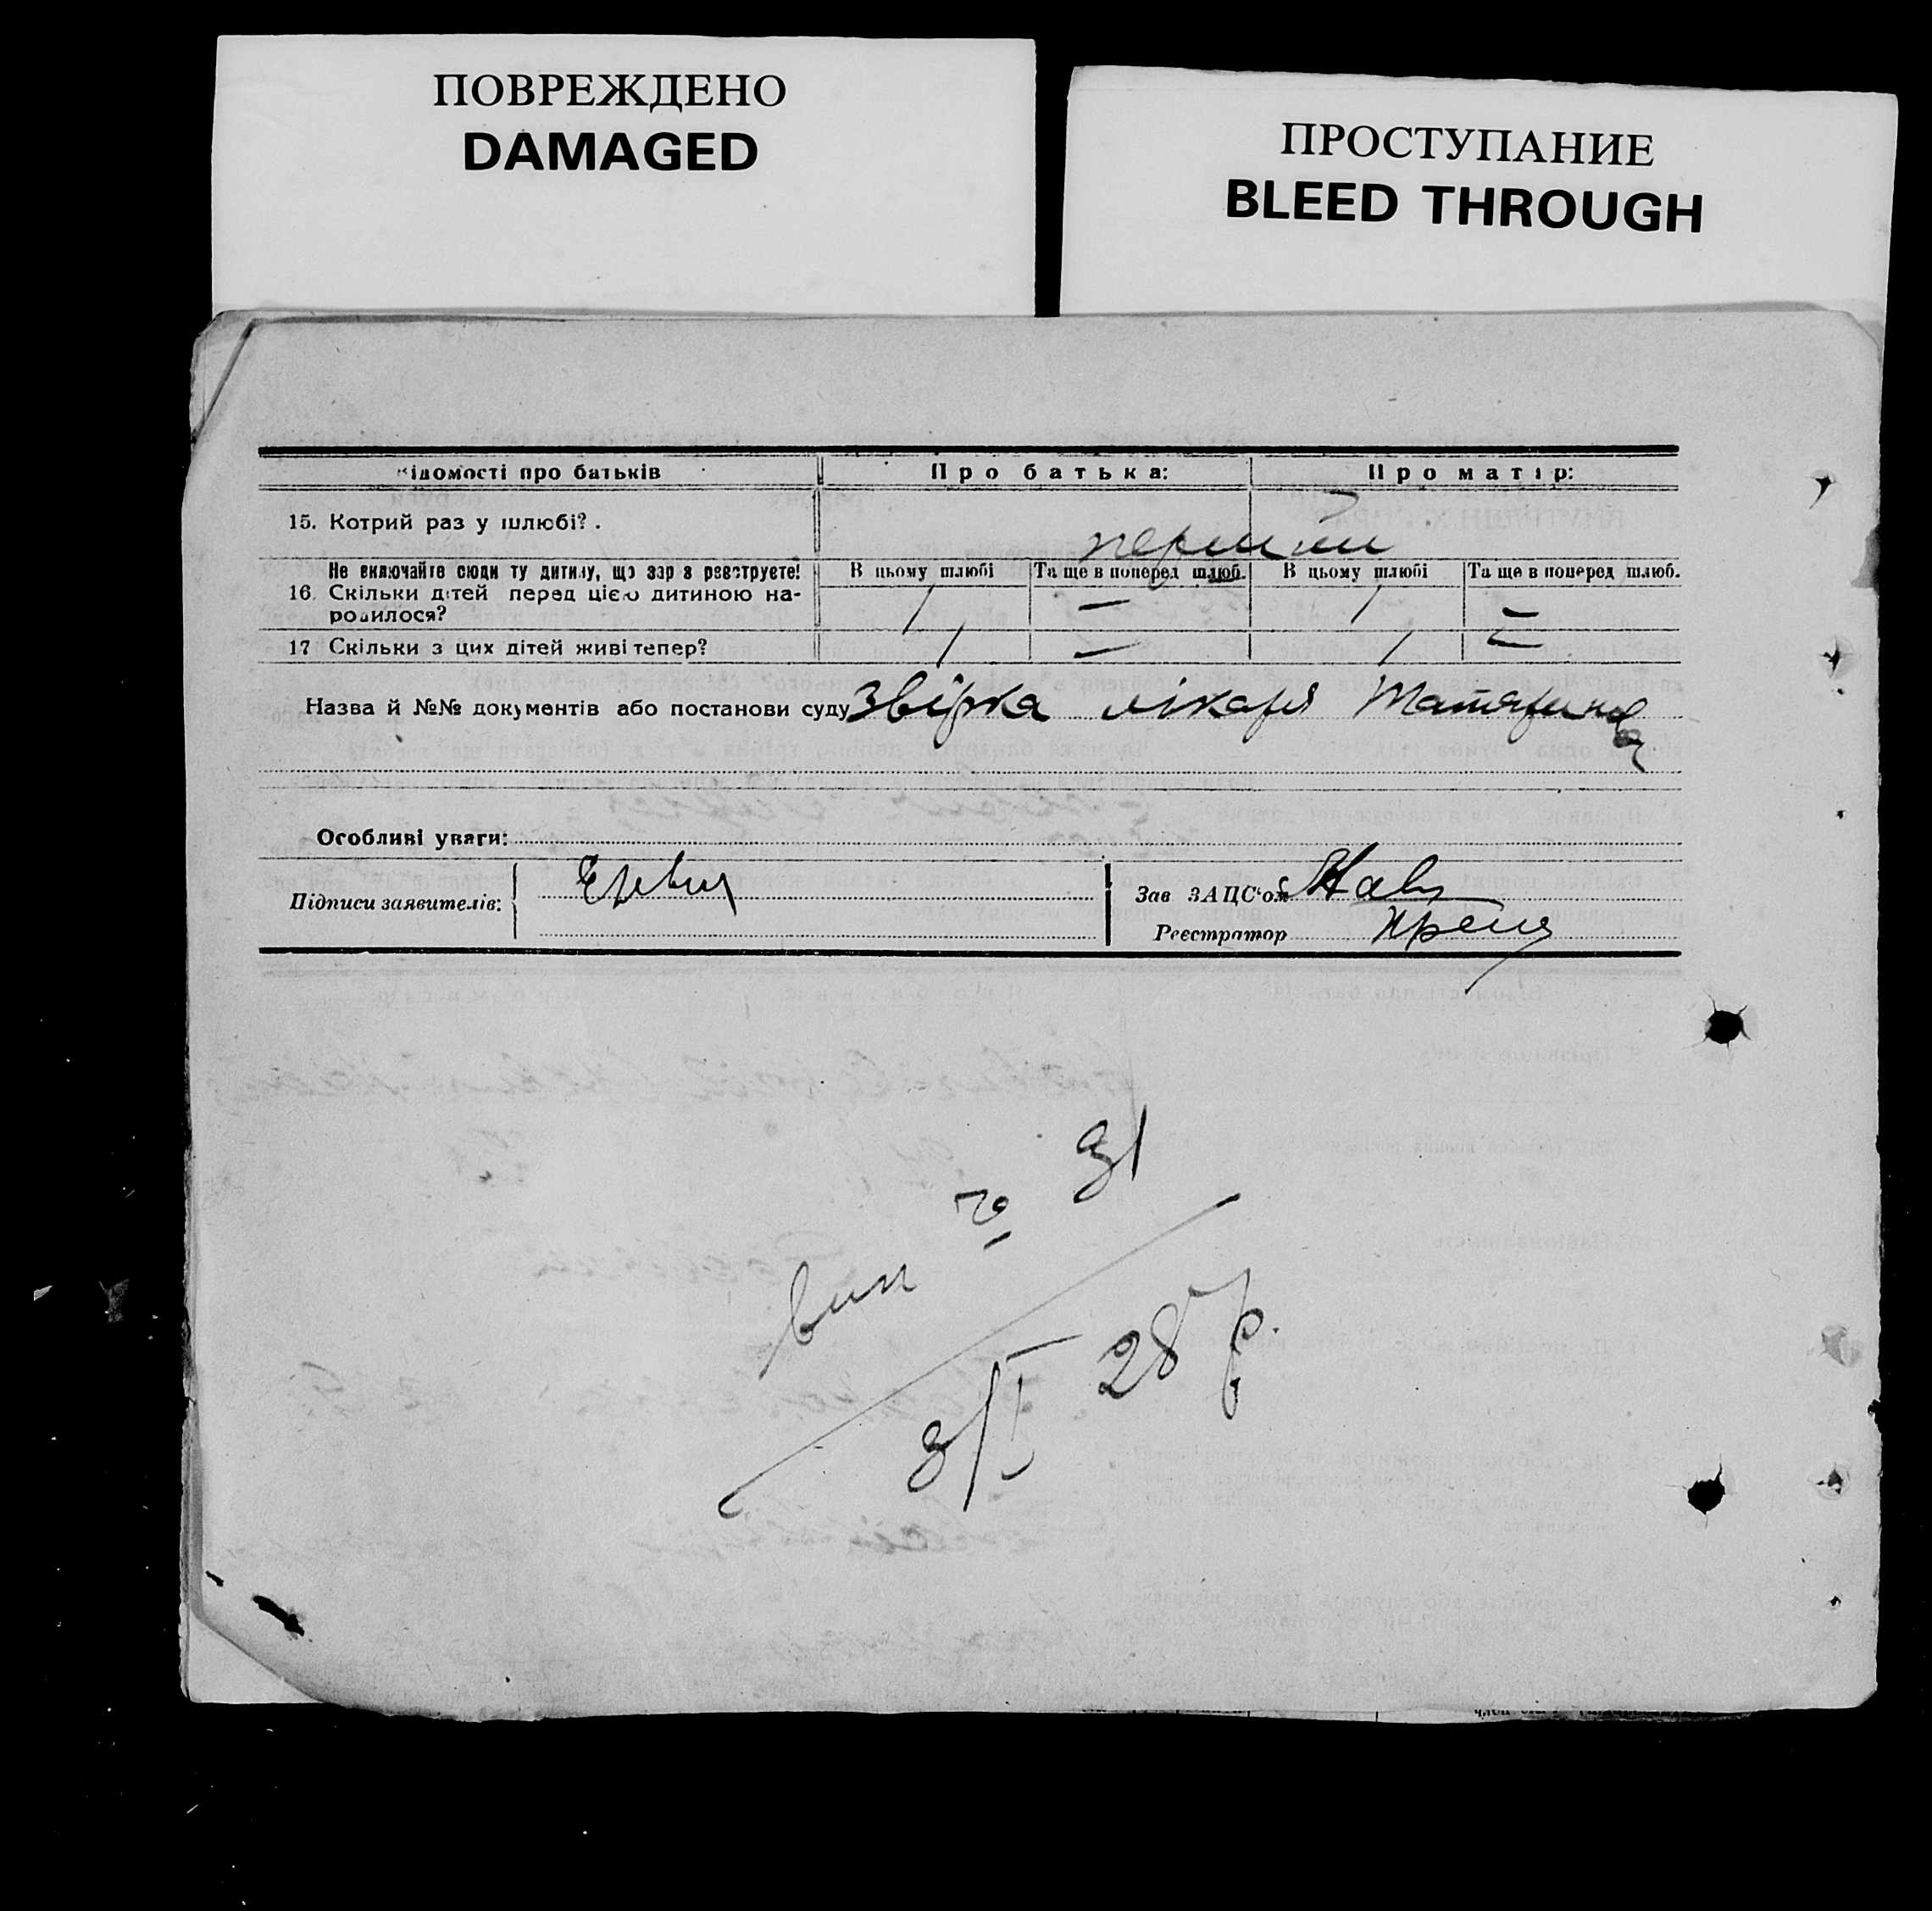 ПОВРЕЖДЕНО
DAMAGED
ПРОСТУПАНИЕ
BLEED THROUGH
ідомості про батьків
Про батька:
Про матір:
15. Котрий раз у шлюбі?.
перший
Не включайте сюди ту дитину, що зараз реєструєте!
16. Скільки дітей перед цією дитиною на-
родилося?
В цьому шлюбі
Та ще в поперед шлюб.
В цьому шлюбі
Та ще в поперед шлюб.
1 — 1 —
17 Скільки з цих дітей живі тепер?
1 — 1 —
Назва й №№ документів або постанови суду Звірка лікаря
Особливі уваги:
Підписи заявителів:
Зав ЗАЦС'ом
Реєстратор
вип
28 р.